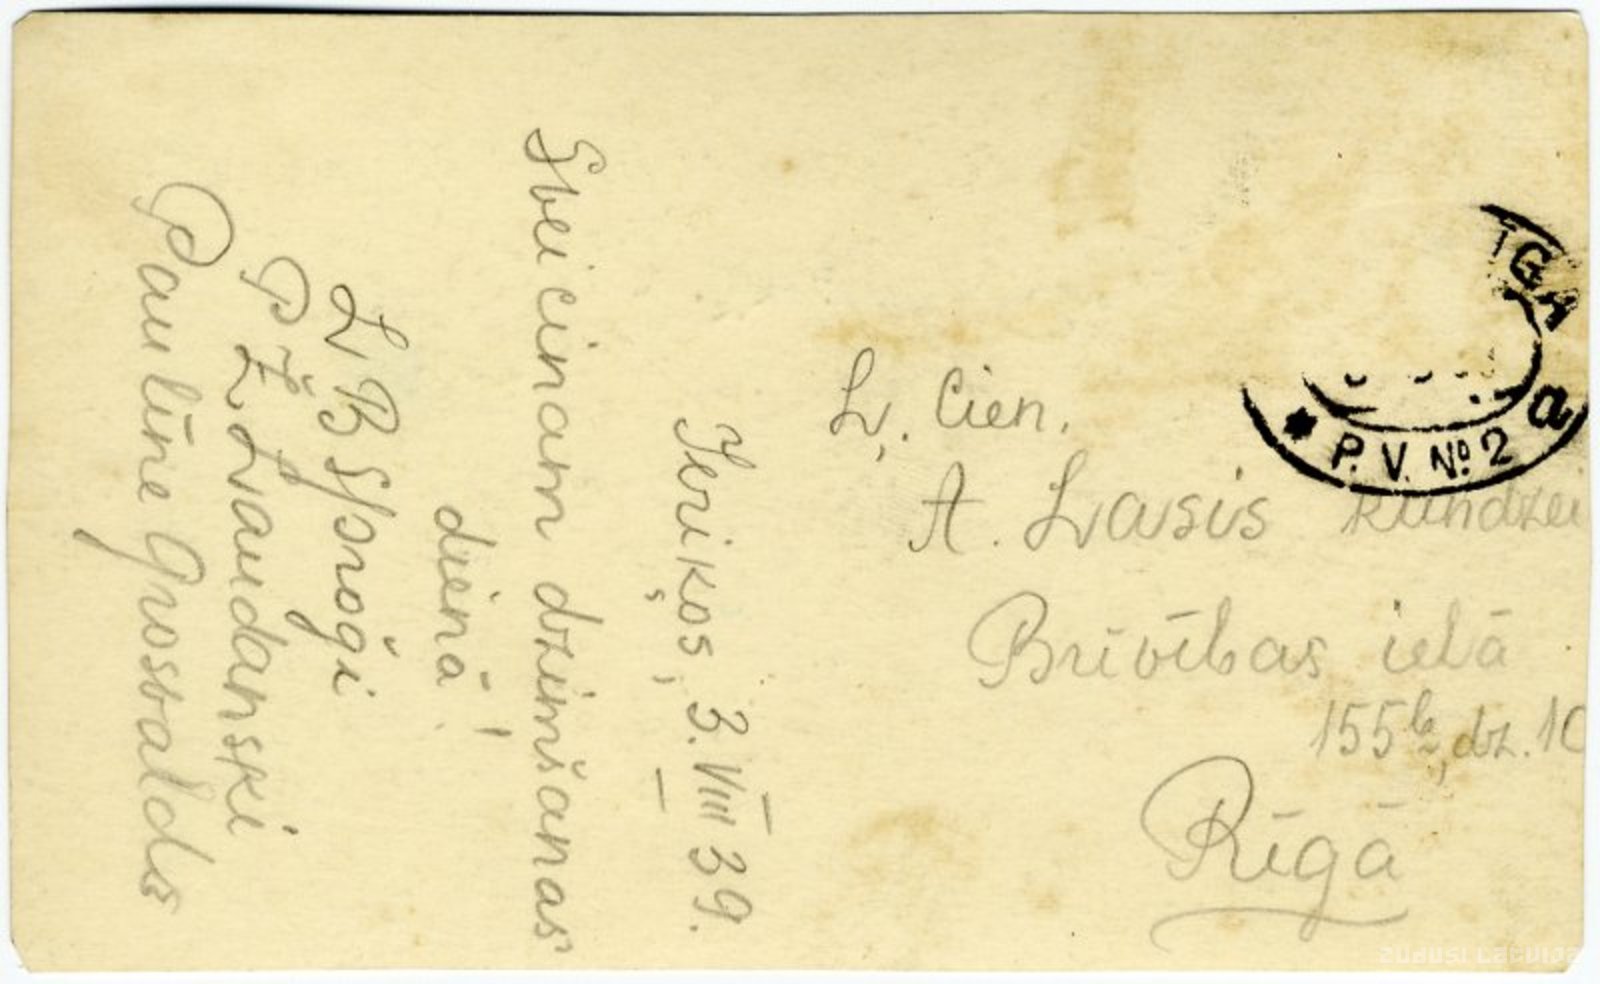 Ieriķos, 3. VIII 39.
Sveicinam dzimšanas
dienā!
L B Sproģi
P Ž Zvaudanski
Paulīne Grosvalds
Ļ. Cien.
A. Lasis kundzei
Brīvības ielā
155b, dz. 10
Rīgā
IGA
a
P. V. № 2
ZUDUSI LATVIJA